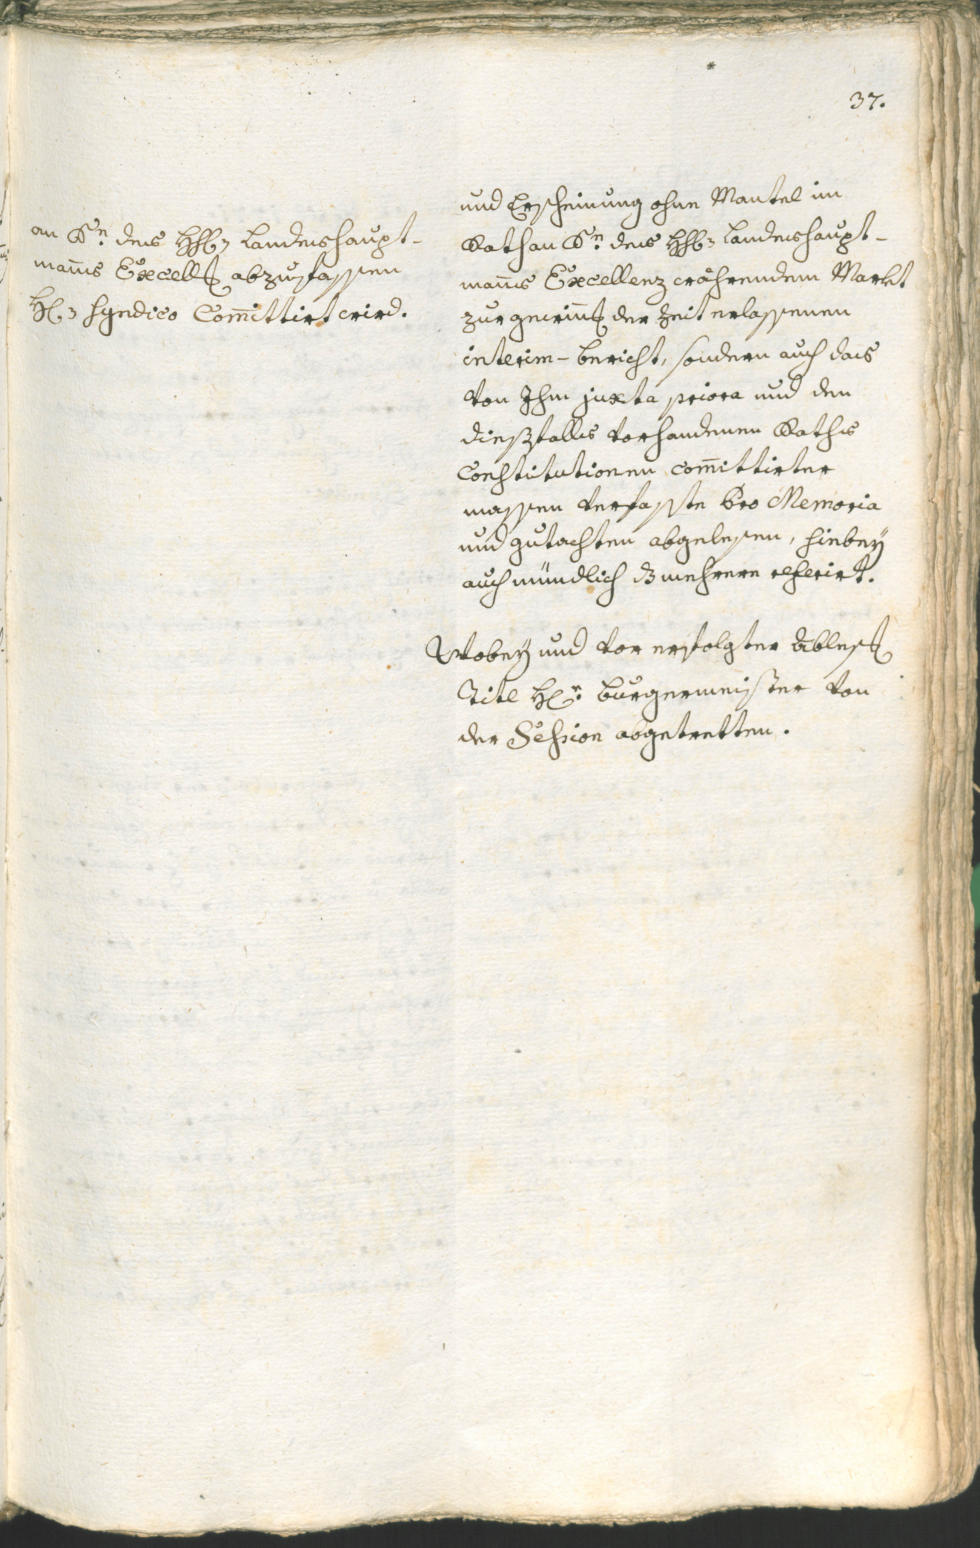 37.
an Sr. des HHl. Landeshaupt-
mans Excellz abzufassen
Hl. Syndico Committirt wird.
und Erscheinung ohne Mantel im
Rath an Sr. des HHl. Landeshaupt-
mans Excellenz währendem Markt
zur gewinz der Zeit erlassenen
interim-bericht, sondern auch das
von Ihm juxta priora und den
diesfalls vorhandenen Raths
Constitutionen comittirter
massen verfasste Pro Memoria
und gutachten abgelesen, hiebey
auch mündlich d mehrere referirt.
Wobey und vor erfolgter Ablesz
Titl Hr. Burgermeister von
der Session abgetretten.